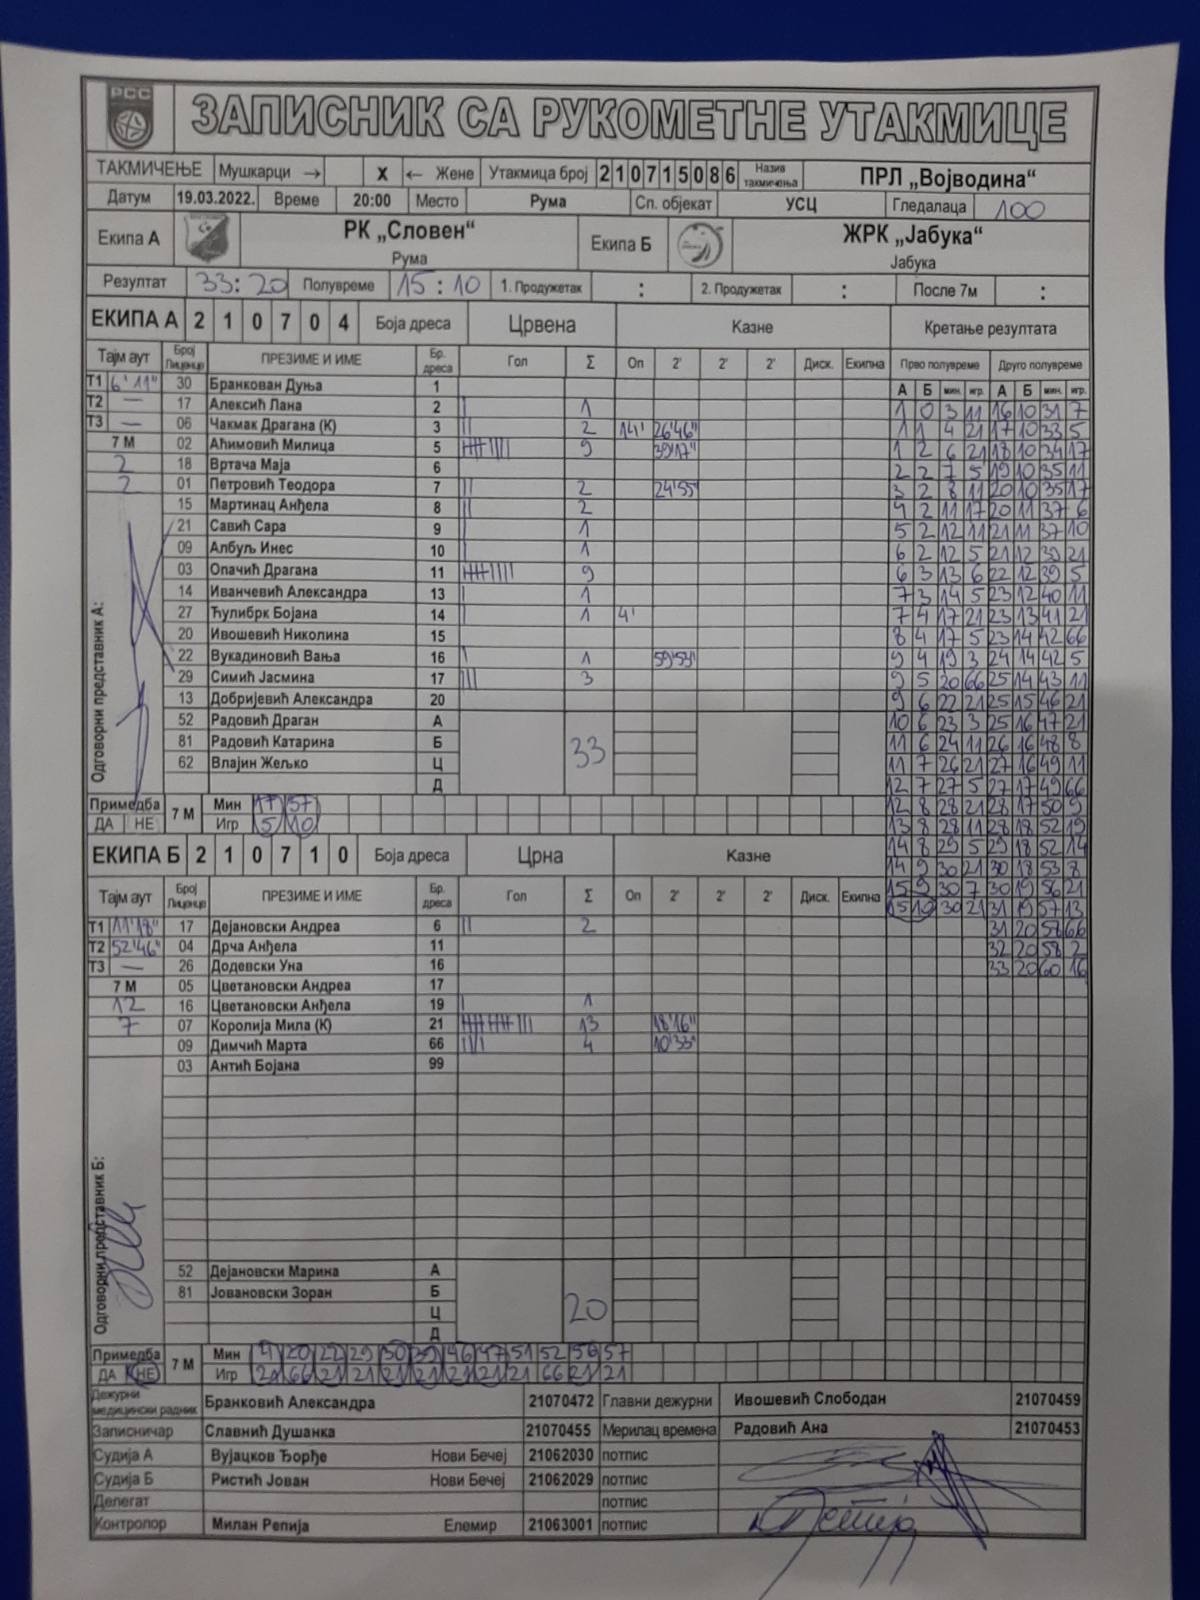 РСС
ЗАПИСНИК СА РУКОМЕТНЕ УТАКМИЦЕ
ТАКМИЧЕЊЕ Мушкарци → X ← Жене Утакмица број 210715086 Назив такмичења ПРЛ „Војводина“
Датум 19.03.2022. Време 20:00 Место Рума Сп. објекат УСЦ Гледалаца 100
Екипа А РК „Словен“ Рума Екипа Б ЖРК „Јабука“ Јабука
Резултат 33:20 Полувреме 15:10 1. Продужетак : 2. Продужетак : После 7м :
ЕКИПА А 210704 Боја дреса Црвена Казне Кретање резултата
Тајм аут Број Лиценце ПРЕЗИМЕ И ИМЕ Бр. дреса Гол Σ Оп 2' 2' 2' Диск. Екипна Прво полувреме Друго полувреме
А Б мин. игр. А Б мин. игр.
Т1 6'11" 30 Бранкован Дуња 1
Т2 — 17 Алексић Лана 2 | 1
Т3 — 06 Чакмак Драгана (К) 3 || 2 14' 26'46"
7 М 02 Аћимовић Милица 5 9 39'17"
2 18 Вртача Маја 6
2 01 Петровић Теодора 7 || 2 24'55"
15 Мартинац Анђела 8 || 2
21 Савић Сара 9 | 1
09 Албуљ Инес 10 | 1
03 Опачић Драгана 11 9
14 Иванчевић Александра 13 | 1
27 Ћулибрк Бојана 14 | 1 4'
20 Ивошевић Николина 15
22 Вукадиновић Вања 16 | 1 59'53"
29 Симић Јасмина 17 ||| 3
13 Добријевић Александра 20
52 Радовић Драган А
81 Радовић Катарина Б 33
62 Влајин Жељко Ц
Д
Примедба ДА НЕ 7 М Мин 17 57
Игр 5 10
1 0 3 11 16 10 31 7
1 1 4 21 17 10 33 5
1 2 6 21 18 10 34 17
2 2 7 5 19 10 35 11
3 2 8 11 20 10 35 17
4 2 11 17 20 11 37 6
5 2 12 11 21 11 37 10
6 2 12 5 21 12 39 21
6 3 13 6 22 12 39 5
7 3 14 5 23 12 40 11
7 4 17 21 23 13 41 21
8 4 17 5 23 14 42 66
9 4 19 3 24 14 42 5
9 5 20 66 25 14 43 11
9 6 22 21 25 15 46 21
10 6 23 3 25 16 47 21
11 6 24 11 26 16 48 8
11 7 26 21 27 16 49 11
12 7 27 5 27 17 49 66
12 8 28 21 28 17 50 9
13 8 28 11 28 18 52 19
14 8 29 5 29 18 52 14
14 9 30 21 30 18 53 8
15 9 30 7 30 19 56 21
15 10 30 21 31 19 57 13
31 20 58 66
32 20 58 2
33 20 60 16
ЕКИПА Б 210710 Боја дреса Црна Казне
Тајм аут Број Лиценце ПРЕЗИМЕ И ИМЕ Бр. дреса Гол Σ Оп 2' 2' 2' Диск. Екипна
Т1 11'18" 17 Дејановски Андреа 6 || 2
Т2 52'46" 04 Дрча Анђела 11
Т3 — 26 Додевски Уна 16
7 М 05 Цветановски Андреа 17
12 16 Цветановски Анђела 19 | 1
7 07 Королија Мила (К) 21 13 18'16"
09 Димчић Марта 66 |||| 4 10'33"
03 Антић Бојана 99
52 Дејановски Марина А
81 Јовановски Зоран Б 20
Ц
Д
Примедба ДА НЕ 7 М Мин 4 20 22 29 30 39 46 47 51 52 56 57
Игр 21 66 21 21 21 21 21 21 21 66 21 21
Одговорни представник А:
Одговорни представник Б:
Дежурни медицински радник Бранковић Александра 21070472 Главни дежурни Ивошевић Слободан 21070459
Записничар Славнић Душанка 21070455 Мерилац времена Радовић Ана 21070453
Судија А Вујацков Ђорђе Нови Бечеј 21062030 потпис
Судија Б Ристић Јован Нови Бечеј 21062029 потпис
Делегат потпис
Контролор Милан Репија Елемир 21063001 потпис